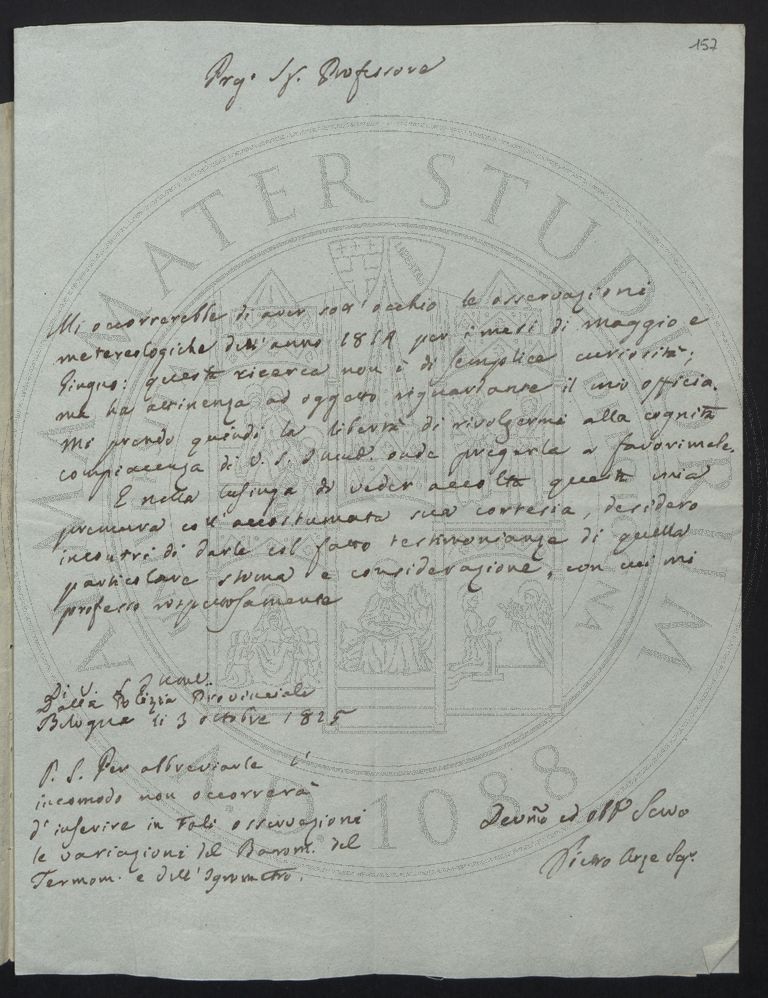 157
Prg.o Sg. Professore
Mi occorrerebbe di aver sott'occhio le osservazioni
metereologiche dell'anno 181 per i mesi di Maggio e
Giugno: questa ricerca non è di semplice curiosità;
ma ha attinenza ad oggetto riguardante il mio officio.
Mi prendo quindi la libertà di rivolgermi alla cognita
compiacenza di V. S. onde pregarla a favorirmele.
E nella lusinga di veder accolta questa mia
premura coll'accostumata sua cortesia, desidero
incontri di darle col fatto testimonianze di quella
particolare stima e considerazione, con cui mi
professo rispettosamente
Di V. S.
Dalla Polizia Provinciale
Bologna li 3 ottobre 1825
P. S. Per abbreviarle l'
incomodo non occorrerà
d'inserire in tali osservazioni
le variazioni del Barom. del
Termom. e dell'Igrometro.
Devmo ed obbo Servo
Pietro
ALMA MATER STUDIORUM
A.D. 1088